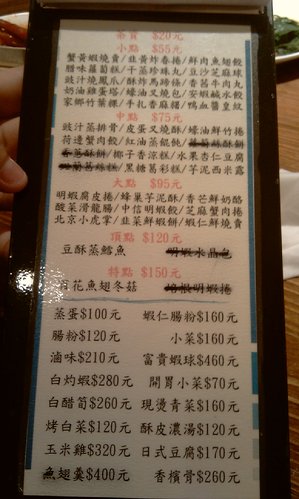 茶資 $20元
小點 $55元
蟹黃蝦燒賣/韭黃炸春捲/鮮肉魚翅餃
腊味蘿蔔糕/干蒸珍珠丸/豆沙芝麻球
豉汁燒鳳爪/酥炸馬蹄條/香茜牛肉丸
奶油雞蛋塔/蠔油叉燒包/安蝦鹹水餃
家鄉竹葉粿/手扎香麻糬/鴨血醬皇紋
中點 $75元
豉汁蒸排骨/皮蛋叉燒酥/蠔油鮮竹捲
荷邊蟹肉餃/紅油蒸餛飩/
椰子香涼糕/水果杏仁豆腐
黑糖葛彩糕/芋泥西米露
大點 $95元
明蝦腐皮捲/蜂巢芋泥酥/香芒鮮奶酪
酸菜滑龍腸/中信明蝦餃/芝麻蟹肉捲
北京小虎掌/韭菜鮮蝦餅/蝦仁鮮燒賣
頂點 $120元
豆酥蒸鱈魚 明蝦水晶包
特點 $150元
百花魚翅冬菇 培根明蝦捲
蒸蛋$100元 蝦仁腸粉$160元
腸粉$120元 小菜$160元
滷味$210元 富貴蝦球$460元
白灼蝦$280元 開胃小菜$70元
白醋筍$260元 現燙青菜$160元
烤白菜$120元 酥皮濃湯$120元
玉米雞$320元 日式豆腐$170元
魚翅羹$400元 香檳骨$260元